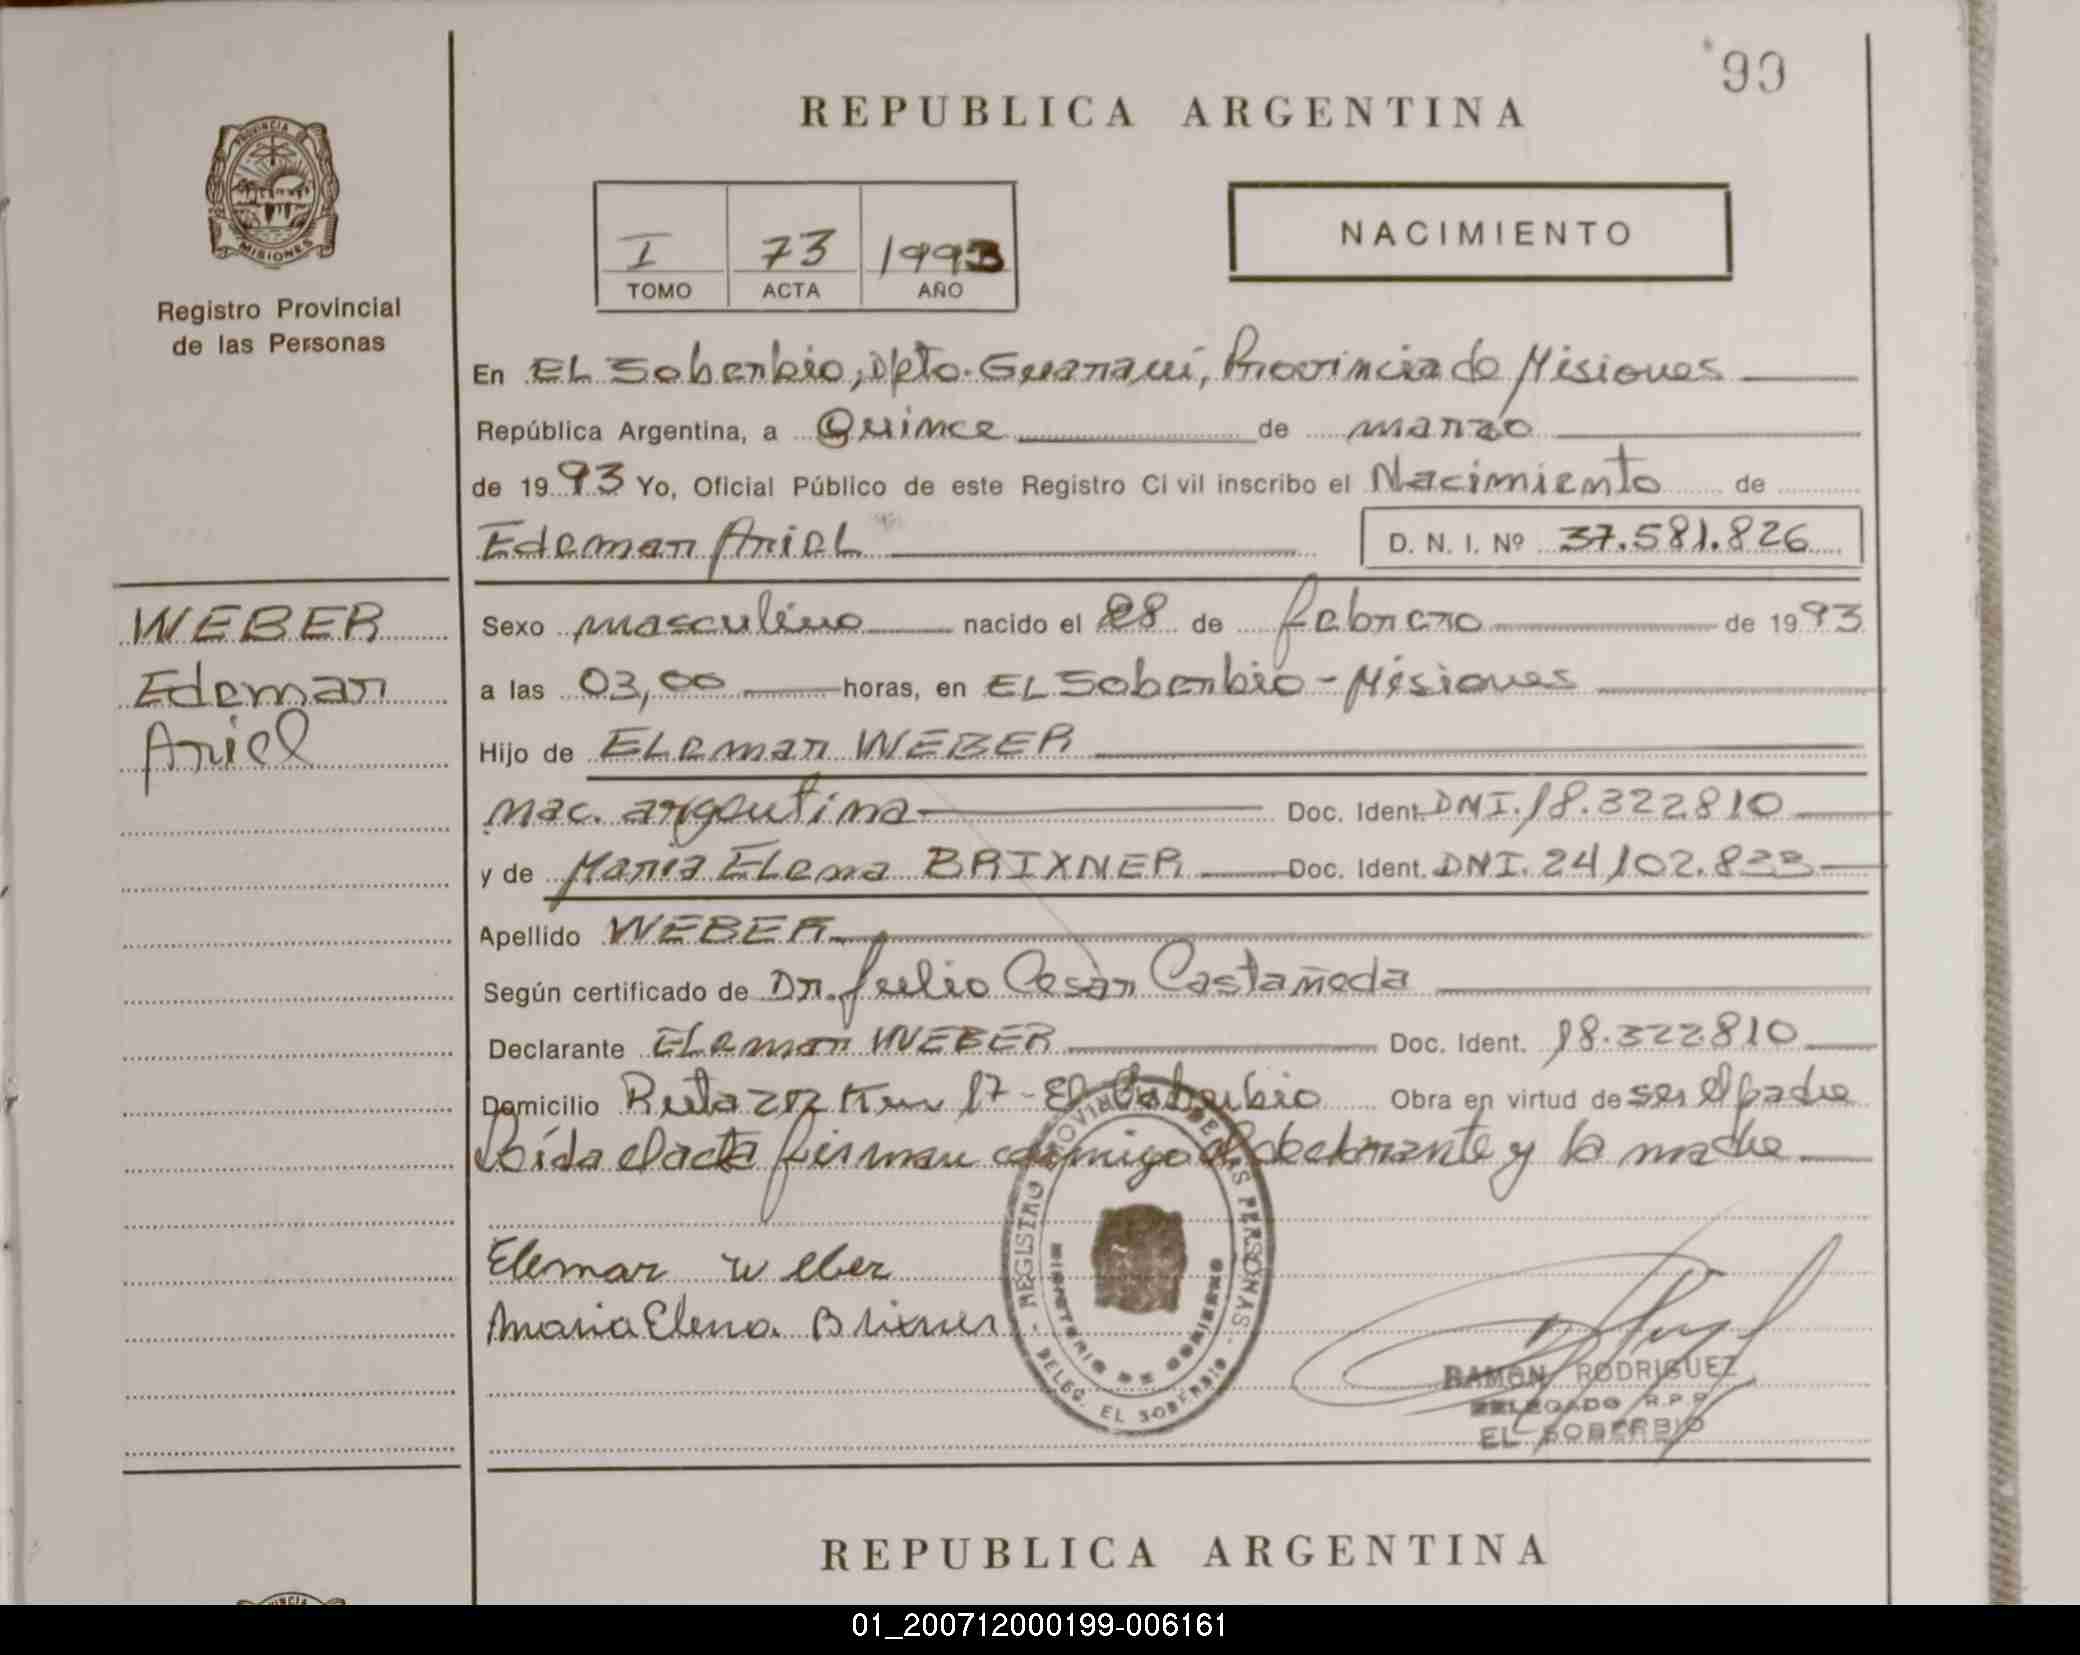 99
REPUBLICA ARGENTINA
PROVINCIA DE
MISIONES
Registro Provincial
de las Personas
I 73 1993
TOMO ACTA AÑO
NACIMIENTO
En EL Soberbio, Dpto. Guaraní, Provincia de Misiones
República Argentina, a Quince de marzo
de 1993 Yo, Oficial Público de este Registro Civil inscribo el Nacimiento de
Edemar Ariel D. N. I. Nº 37.581.826
WEBER
Edemar
Ariel
Sexo masculino nacido el 28 de febrero de 1993
a las 03,00 horas, en EL Soberbio - Misiones
Hijo de Elemar WEBER
nac. argentina Doc. Ident. DNI. 18.322810
y de Maria Elena BRIXNER Doc. Ident. DNI. 24,102.833
Apellido WEBER
Según certificado de Dr. Julio Cesar Castañeda
Declarante Elemar WEBER Doc. Ident. 18.322810
Domicilio Ruta 202 Km 17 - El Soberbio Obra en virtud de ser el padre
Leída el acta firman conmigo el declarante y la madre
Elemar weber
Maria Elena Brixner
REGISTRO PROVINCIAL DE LAS PERSONAS
MINISTERIO DE GOBIERNO
DELEG. EL SOBERBIO
RAMON RODRIGUEZ
DELEGADO R.P.P.
EL SOBERBIO
REPUBLICA ARGENTINA
01_200712000199-006161